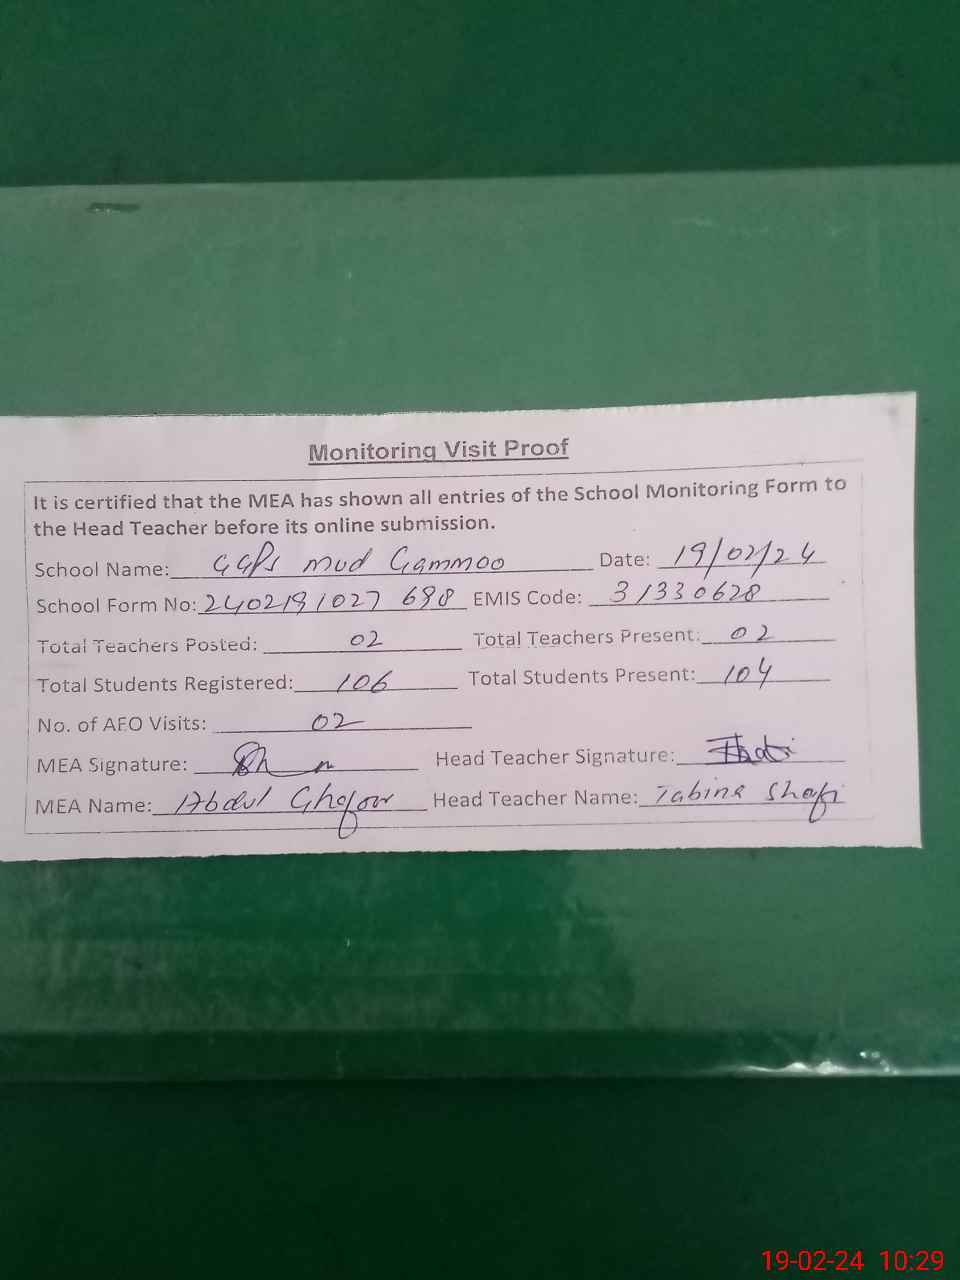 Monitoring Visit Proof
It is certified that the MEA has shown all entries of the School Monitoring Form to
the Head Teacher before its online submission.
School Name: GGPS Mud Gammoo Date: 19/02/24
School Form No: 2402191027 698 EMIS Code: 31330628
Total Teachers Posted: 02 Total Teachers Present: 02
Total Students Registered: 106 Total Students Present: 104
No. of AEO Visits: 02
MEA Signature: Head Teacher Signature:
MEA Name: Abdul Ghafoor Head Teacher Name: Tabina Shafi
19-02-24 10:29